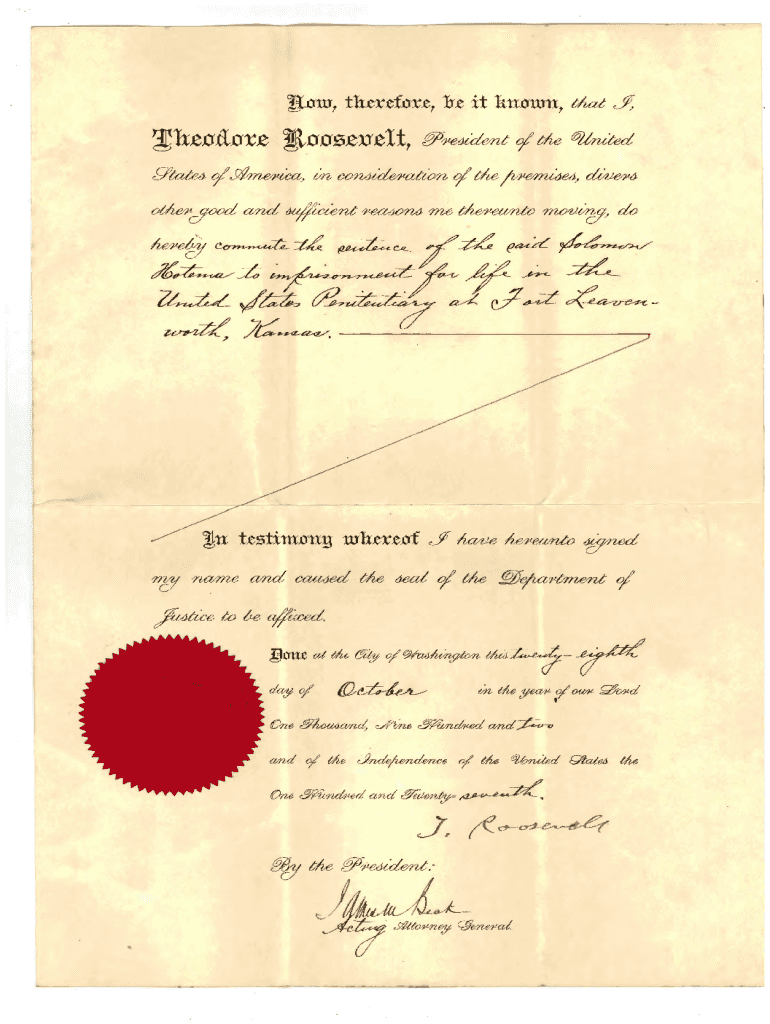 Now, therefore, be it known, that I,
Theodore Roosevelt, President of the United
States of America, in consideration of the premises, divers
other good and sufficient reasons me thereunto moving, do
hereby commute the sentence of the said Solomon
Hotema to imprisonment for life in the
United States Penitentiary at Fort Leaven-
worth, Kansas.
In testimony whereof I have hereunto signed
my name and caused the seal of the Department of
Justice to be affixed.
Done at the City of Washington this twenty-eighth
day of October in the year of our Lord
One Thousand, Nine Hundred and two
and of the Independence of the United States the
One Hundred and Twenty-seventh.
T. Roosevelt
By the President:
James M Beck
Acting Attorney General